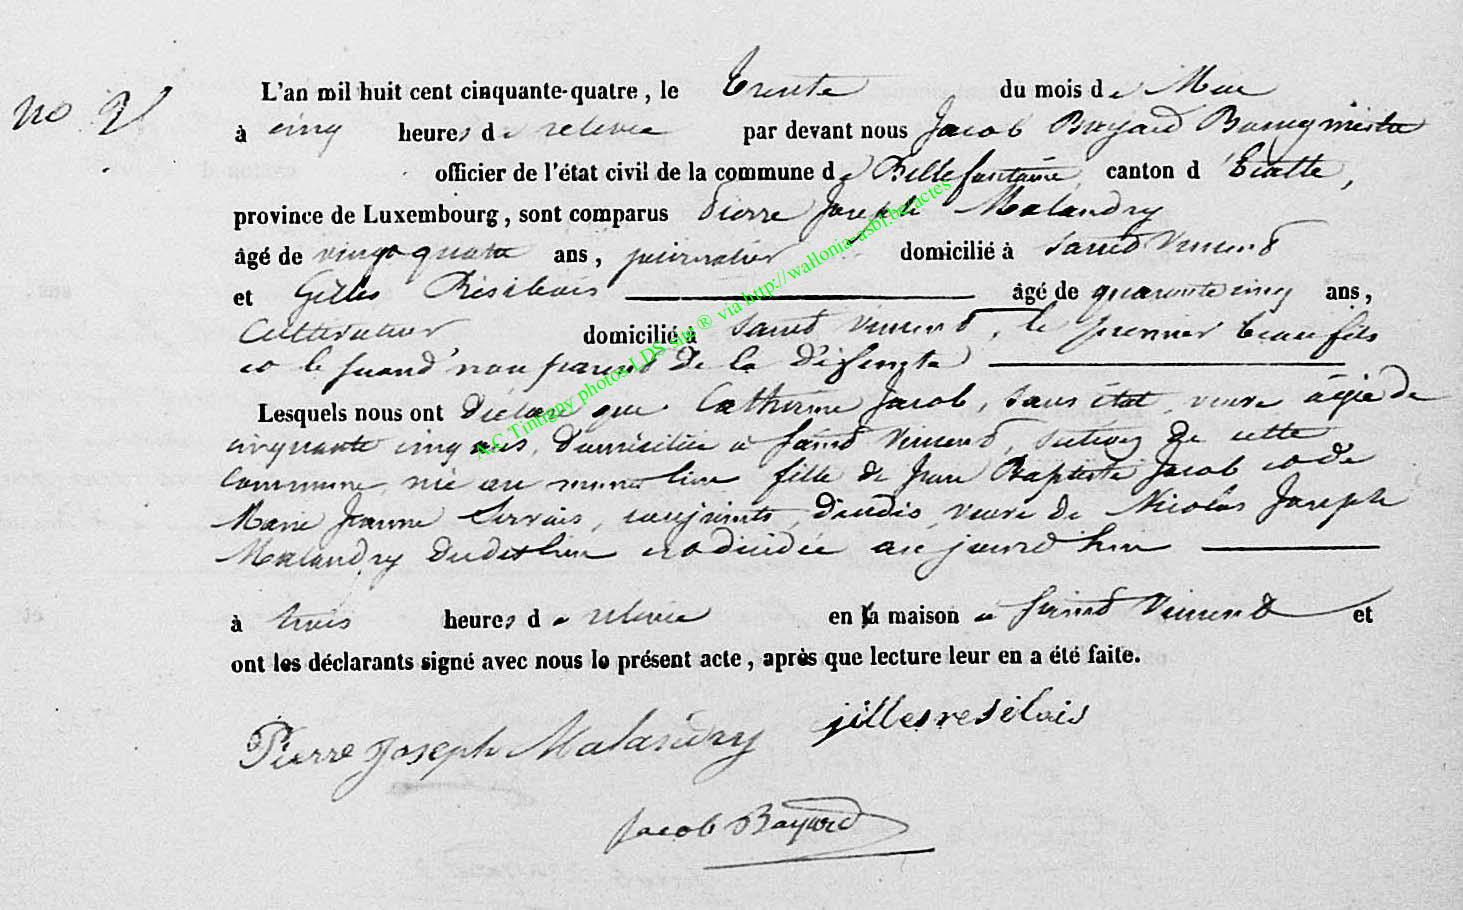 L'an mil huit cent cinquante-quatre, le Trente du mois de Mai
no
à cinq heures de relevée par devant nous Jacob Bayard Bourgmestre
officier de l'état civil de la commune de Bellefontaine canton d'Etalle,
province de Luxembourg, sont comparus Pierre Joseph Malandry
âgé de vingt quatre ans, journalier domicilié à Saint Vincent
et Gilles Résibois âgé de quarante cinq ans,
Cultivateur domicilié à Saint Vincent, le premier beau fils
et le second non parent de la Défunte
Lesquels nous ont Déclaré que Catherine Jacob, sans état, veuve âgée de
cinquante cinq ans, Domiciliée à Saint Vincent, section de cette
Commune, née au même lieu fille de Jean Baptiste Jacob et de
Marie Jeanne Servais, conjoints, décédés, veuve de Nicolas Joseph
Malandry dudit lieu est décédée aujourd'hui
à trois heures de relevée en la maison à Saint Vincent et
ont les déclarants signé avec nous le présent acte, après que lecture leur en a été faite.
Pierre Joseph Malandry gilles resibois
Jacob Bayard
A.C Tintigny photos LDS site ® via http://wallonia-asbl.be/actes